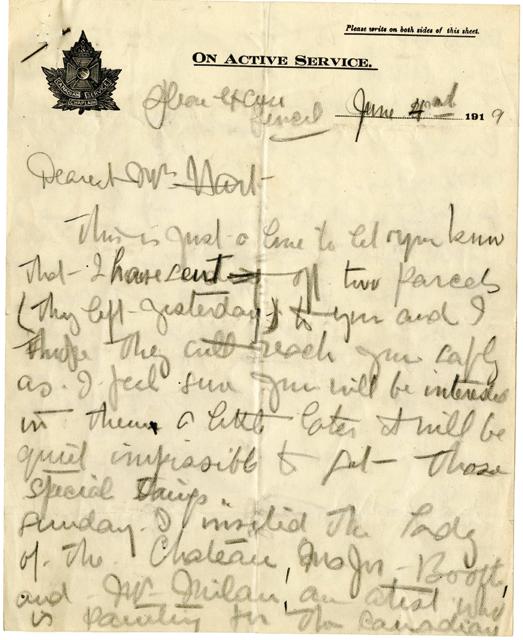 Please write on both sides of this sheet.
CANADIAN SERVICE
CHAPLAIN
ON ACTIVE SERVICE.
June 1919
Dearest Mrs Hart
This is just a line to let you know
that I have sent off two parcels
(they left yesterday) to you and I
hope they will reach you safely
as I feel sure you will be interested
in them a little later it will be
quiet impossible to get those
special things.
Sunday I invited the Lady
of the Chateau, Major Booth,
and Mr Milan, an atist who
is painting for the Canadian